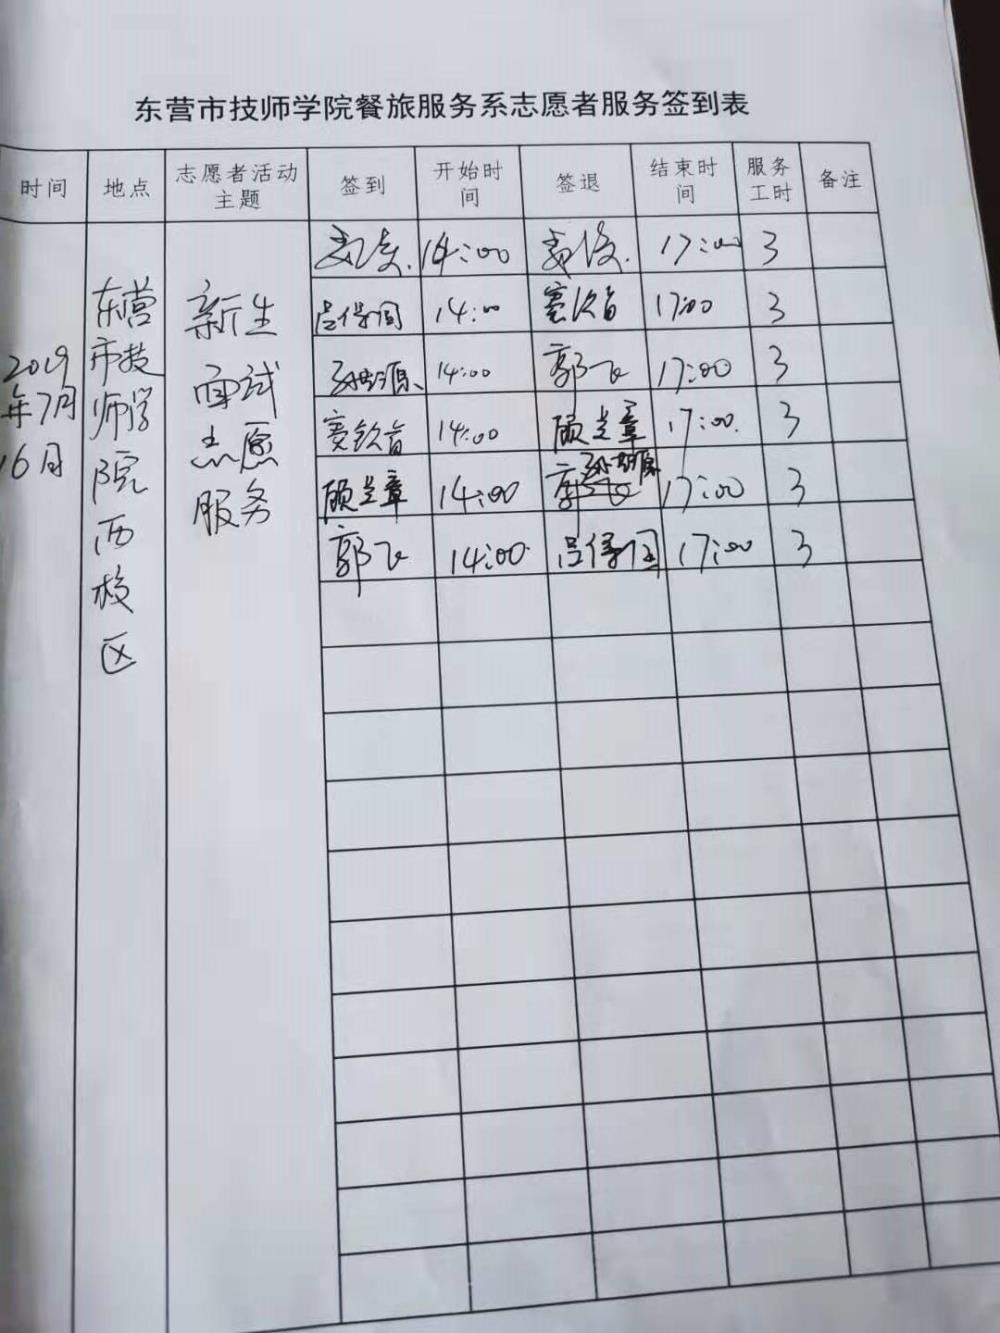 东营市技师学院餐旅服务系志愿者服务签到表
时间 地点 志愿者活动主题 签到 开始时间 签退 结束时间 服务工时 备注
2019年7月16日
东营市技师学院西校区
新生面试志愿服务
14:00 17:00 3
吕保国 14:00 17:00 3
14:00 郭飞 17:00 3
14:00 顾兰章 17:00. 3
顾兰章 14:00 17:00 3
郭飞 14:00. 吕保国 17:00 3